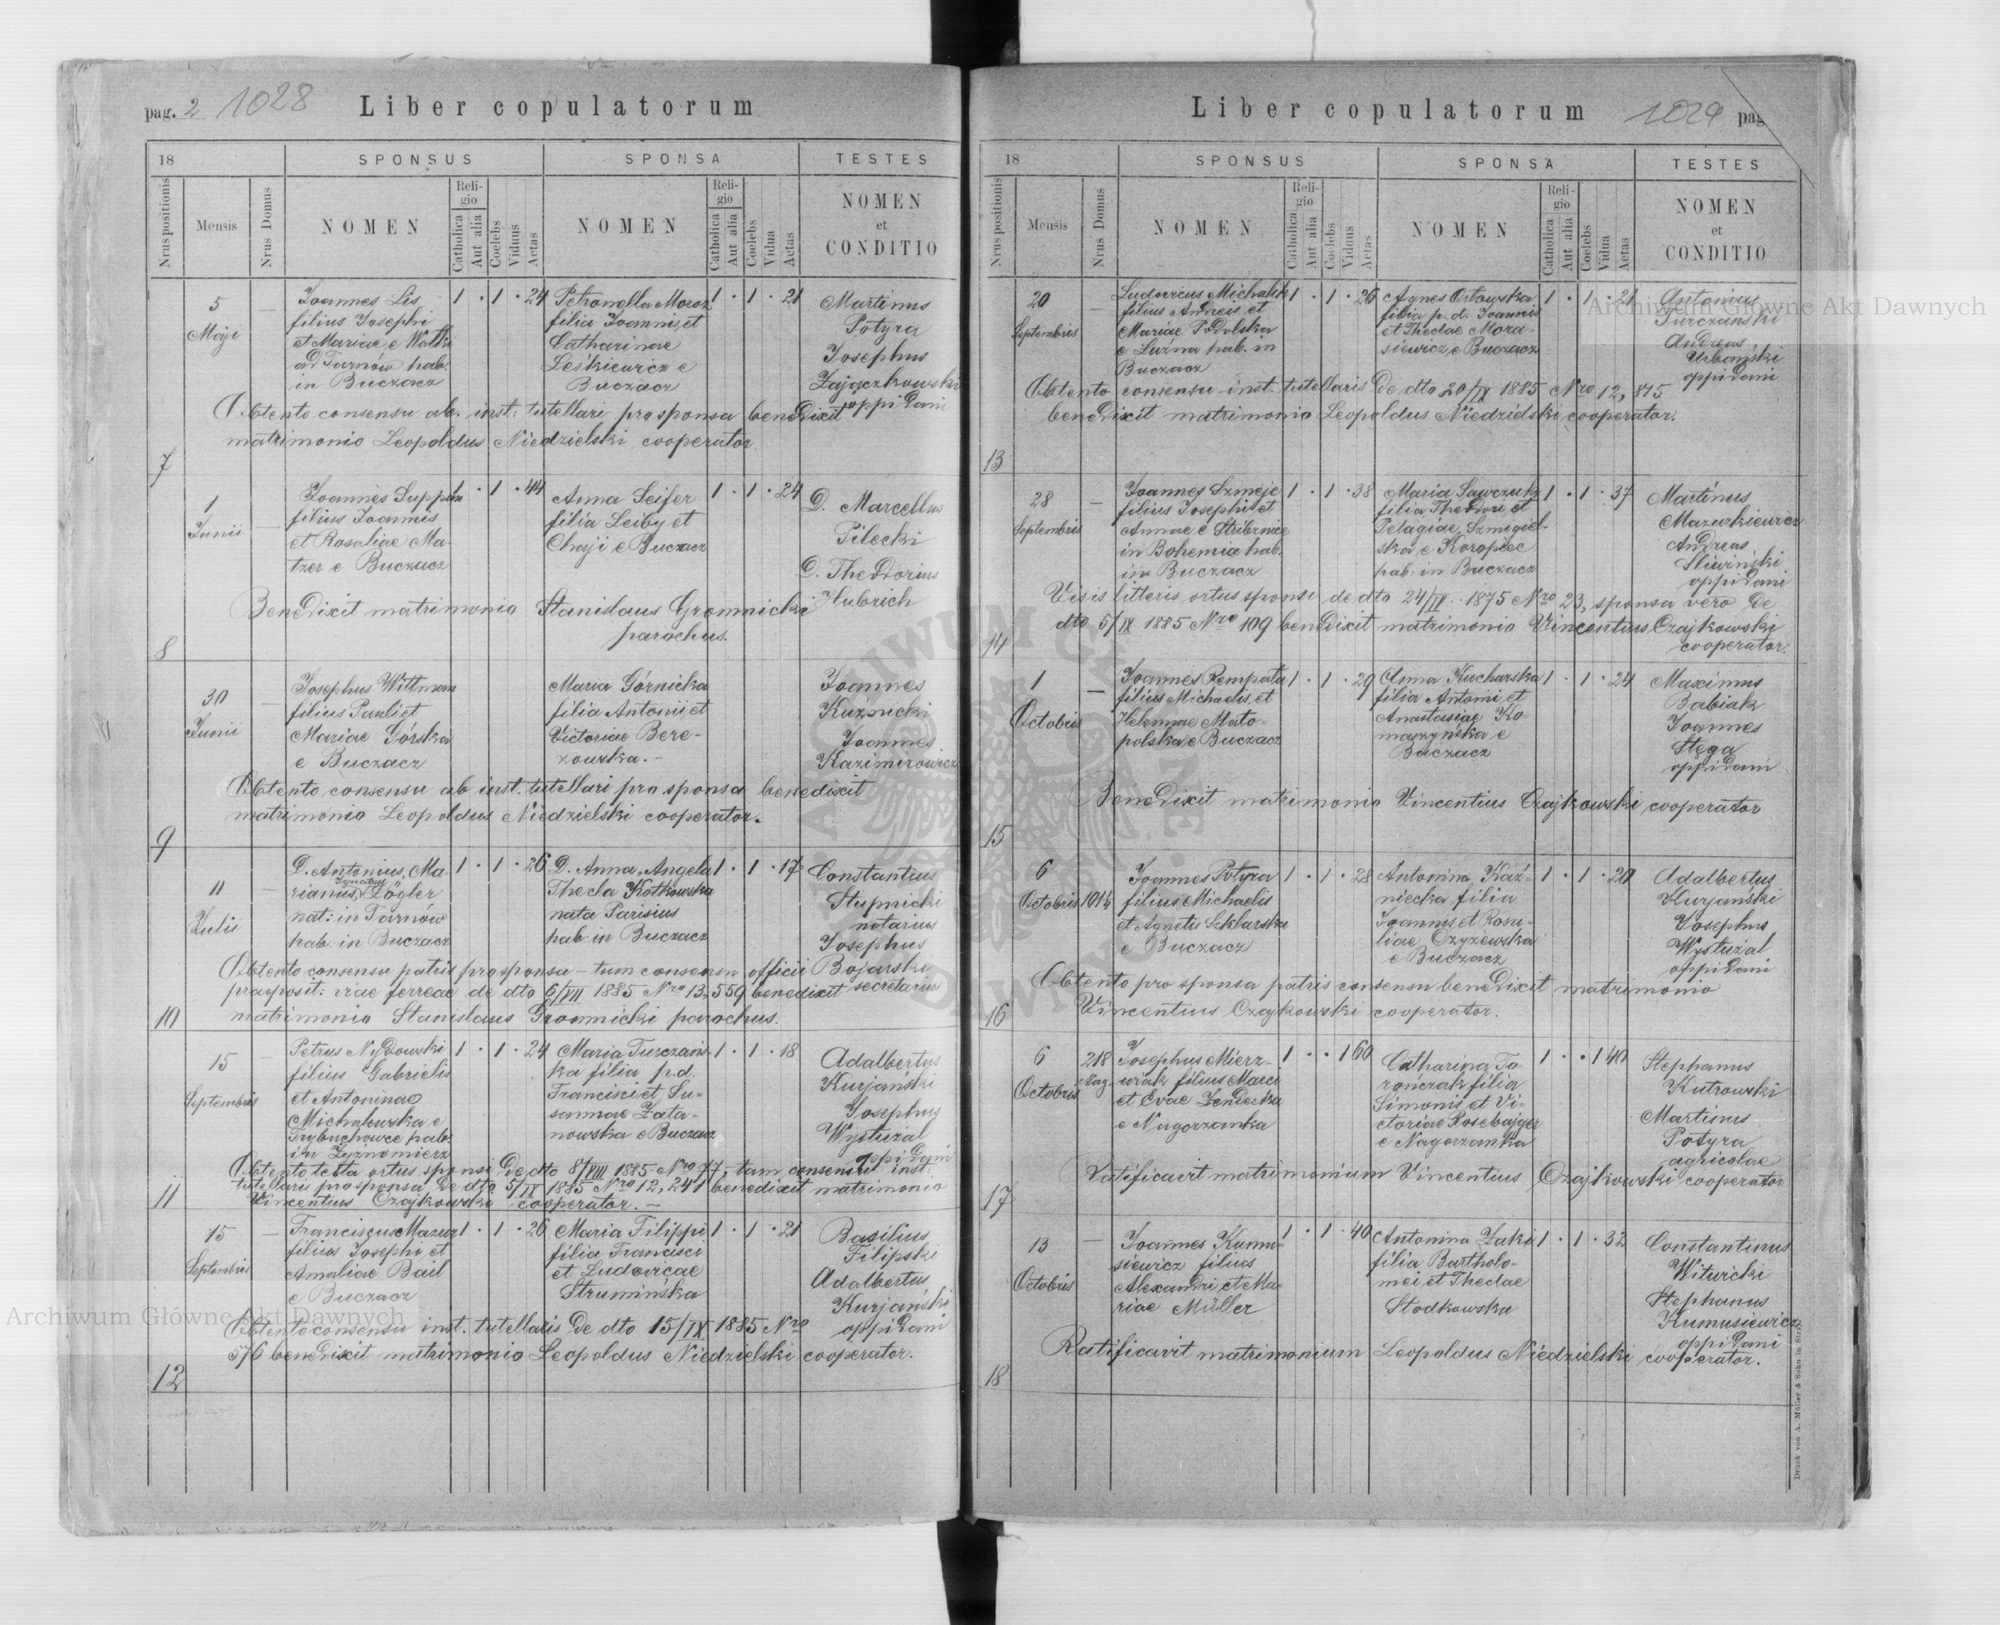 pag. 2 1028 Liber copulatorum
18 SPONSUS SPONSA TESTES
Nrus positionis Mensis Nrus Domus NOMEN Religio Catholica Aut alia Coelebs Viduus Aetas NOMEN Religio Catholica Aut alia Coelebs Vidua Aetas NOMEN et CONDITIO
7
5
Maji
Joannes Lis
filius Josephi
et Mariae e
ad Tarnów hab.
in Buczacz
1 · 1 · 24
Petronella Moroz
filia Joannis et
Catharinae
Leśkiewicz e
Buczacz
1 · 1 · 21
Martinus
Potyra
Josephus
Zajączkowski
oppidani
Obtento consensu ab. inst: tutellari pro sponsa benedixit
matrimonio Leopoldus Niedzielski cooperator
8
1
Junii
Joannes
filius Joannis
et Rosaliae Ma-
tzer e Buczacz
1 · 1 · 44
Anna Seifer
filia Leiby et
Chaji e Buczacz
1 · 1 · 24
D. Marcellus
Pilecki
D. Theodorius
Hubrich
Benedixit matrimonio Stanislaus Gromnicki
parochus.
9
30
Junii
Josephus Wittman
filius Pauli et
Mariae Górska
e Buczacz
Maria Górnicka
filia Antonii et
Victoriae Bere-
zowska. -
Joannes
Kuźnicki
Joannes
Kazimirowicz
Obtento consensu ab inst. tutellari pro sponsa benedixit
matrimonio Leopoldus Niedzielski cooperator.
10
11
Julii
D. Antonius, Ma-
rianus, Ignatius Zögler
nat: in Tarnów
hab. in Buczacz
1 · 1 · 26
D. Anna, Angela
Thecla Kotkowska
nata Parisius
hab. in Buczacz
1 · 1 · 17
Constantius
Stupnicki
notarius
Josephus
Bojarski
secretarius
Obtento consensu patris pro sponsa - tum consensu officii
praeposit: viae ferreae de dto 6/VII 1885 Nro 13,559 benedixit
matrimonio Stanislaus Gromnicki parochus.
11
15
Septembris
Petrus Nydowski
filius Gabrielis
et Antoninae
Michalewska e
Trybuchowce hab.
in Zyznomierz
1 · 1 · 24
Maria Turczańs-
ka filia p.d.
Francisci et Su-
sannae Zata-
nowska e Buczacz
1 · 1 · 18
Adalbertus
Kurjański
Josephus
Wystuzal
oppidani
Obtento testa ortus sponsi de dto 8/VIII 1885 Nro 77, tum consensu inst.
tutellaris pro sponsa de dto 5/IX 1885 Nro 12,241 benedixit matrimonio
Vincentius Czajkowski cooperator. -
12
15
Septembris
Franciscus Mazur
filius Josephi et
Amaliae Bail
e Buczacz
1 · 1 · 26
Maria Filippi
filia Francisci
et Ludovicae
Strumińska
1 · 1 · 21
Basilius
Filipski
Adalbertus
Kurjański
oppidani
Obtento consensu inst. tutellaris de dto 15/IX 1885 Nro
576 benedixit matrimonio Leopoldus Niedzielski cooperator.
Liber copulatorum 1029 pag
18 SPONSUS SPONSA TESTES
Nrus positionis Mensis Nrus Domus NOMEN Religio Catholica Aut alia Coelebs Viduus Aetas NOMEN Religio Catholica Aut alia Coelebs Vidua Aetas NOMEN et CONDITIO
13
20
Septembris
Ludovicus Michalik
filius Andreis et
Mariae Podolska
e Luźna hab. in
Buczacz
1 · 1 · 26
Agnes Orłowska
filia p. d. Joannis
et Theclae Mora-
siewicz e Buczacz
1 · 1 · 21
Antonius
Turczański
Andreas
Urbański
oppidani
Obtento consensu inst. tutellaris de dto 20/IX 1885 Nro 12,875
benedixit matrimonio Leopoldus Niedzielski cooperator.
14
28
Septembris
Joannes Szmejc
filius Josephi et
Annae e Stribrnice
in Bohemia hab.
in Buczacz
1 · 1 · 38
Maria Sawczuk
filia Theodori et
Pelagiae Szmigiel-
ska e Koropiec
hab: in Buczacz
1 · 1 · 37
Martinus
Mazurkiewicz
Andreas
Śliwiński
oppidani
Visis litteris ortus sponsi de dto 24/IX 1875 Nro 23, sponsa vero de
dto 5/IX 1885 Nro 109 benedixit matrimonio Vincentius Czajkowski
cooperator.
15
1
Octobris
Joannes Rempała
filius Michaelis et
Helennae Mało-
polska e Buczacz
1 · 1 · 29
Anna Kucharska
filia Antoni et
Anastasiae Ko-
maszyńska e
Buczacz
1 · 1 · 24
Maximus
Babiak
Joannes
Stęga
oppidani
Benedixit matrimonio Vincentius Czajkowski cooperator
16
6
Octobris
1014
Joannes Potyra
filius Michaelis
et Agnetis Szklarska
e Buczacz
1 · 1 · 28
Antonina Kaź-
niecka filia
Joannis et Rosa-
liae Czyżewska
e Buczacz
1 · 1 · 20
Adalbertus
Kurjański
Josephus
Wystuzal
oppidani
Obtento pro sponsa patris consensu benedixit matrimonio
Vincentius Czajkowski cooperator.
17
6
Octobris
218
Nag.
Josephus Mierz-
wiak filius Marci
et Evae Zendecka
e Nagorzanka
1 · · 1 60
Catharina To-
rończak filia
Simonis et Vi-
ctoriae Rosebajger
e Nagorzanka
1 · · 1 40
Stephanus
Kutrowski
Martinus
Potyra
agricolae
Ratificavit matrimonium Vincentius Czajkowski cooperator
18
13
Octobris
Joannes Kumu-
siewicz filius
Alexandri et Ma-
riae Müller
1 · 1 · 40
Antonina Zaki
filia Bartholo-
mei et Theclae
Stodkowska
1 · 1 · 32
Constantinus
Witwicki
Stephanus
Kumusiewicz
oppidani
Ratificavit matrimonium Leopoldus Niedzielski cooperator.
Druck von A. Müller & Sohn in
Archiwum Główne Akt Dawnych
Archiwum Główne Akt Dawnych
ARCHIWUM GŁÓWNE AKT DAWNYCH